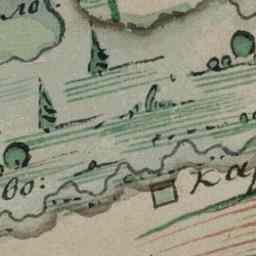 ло:
во:
кар